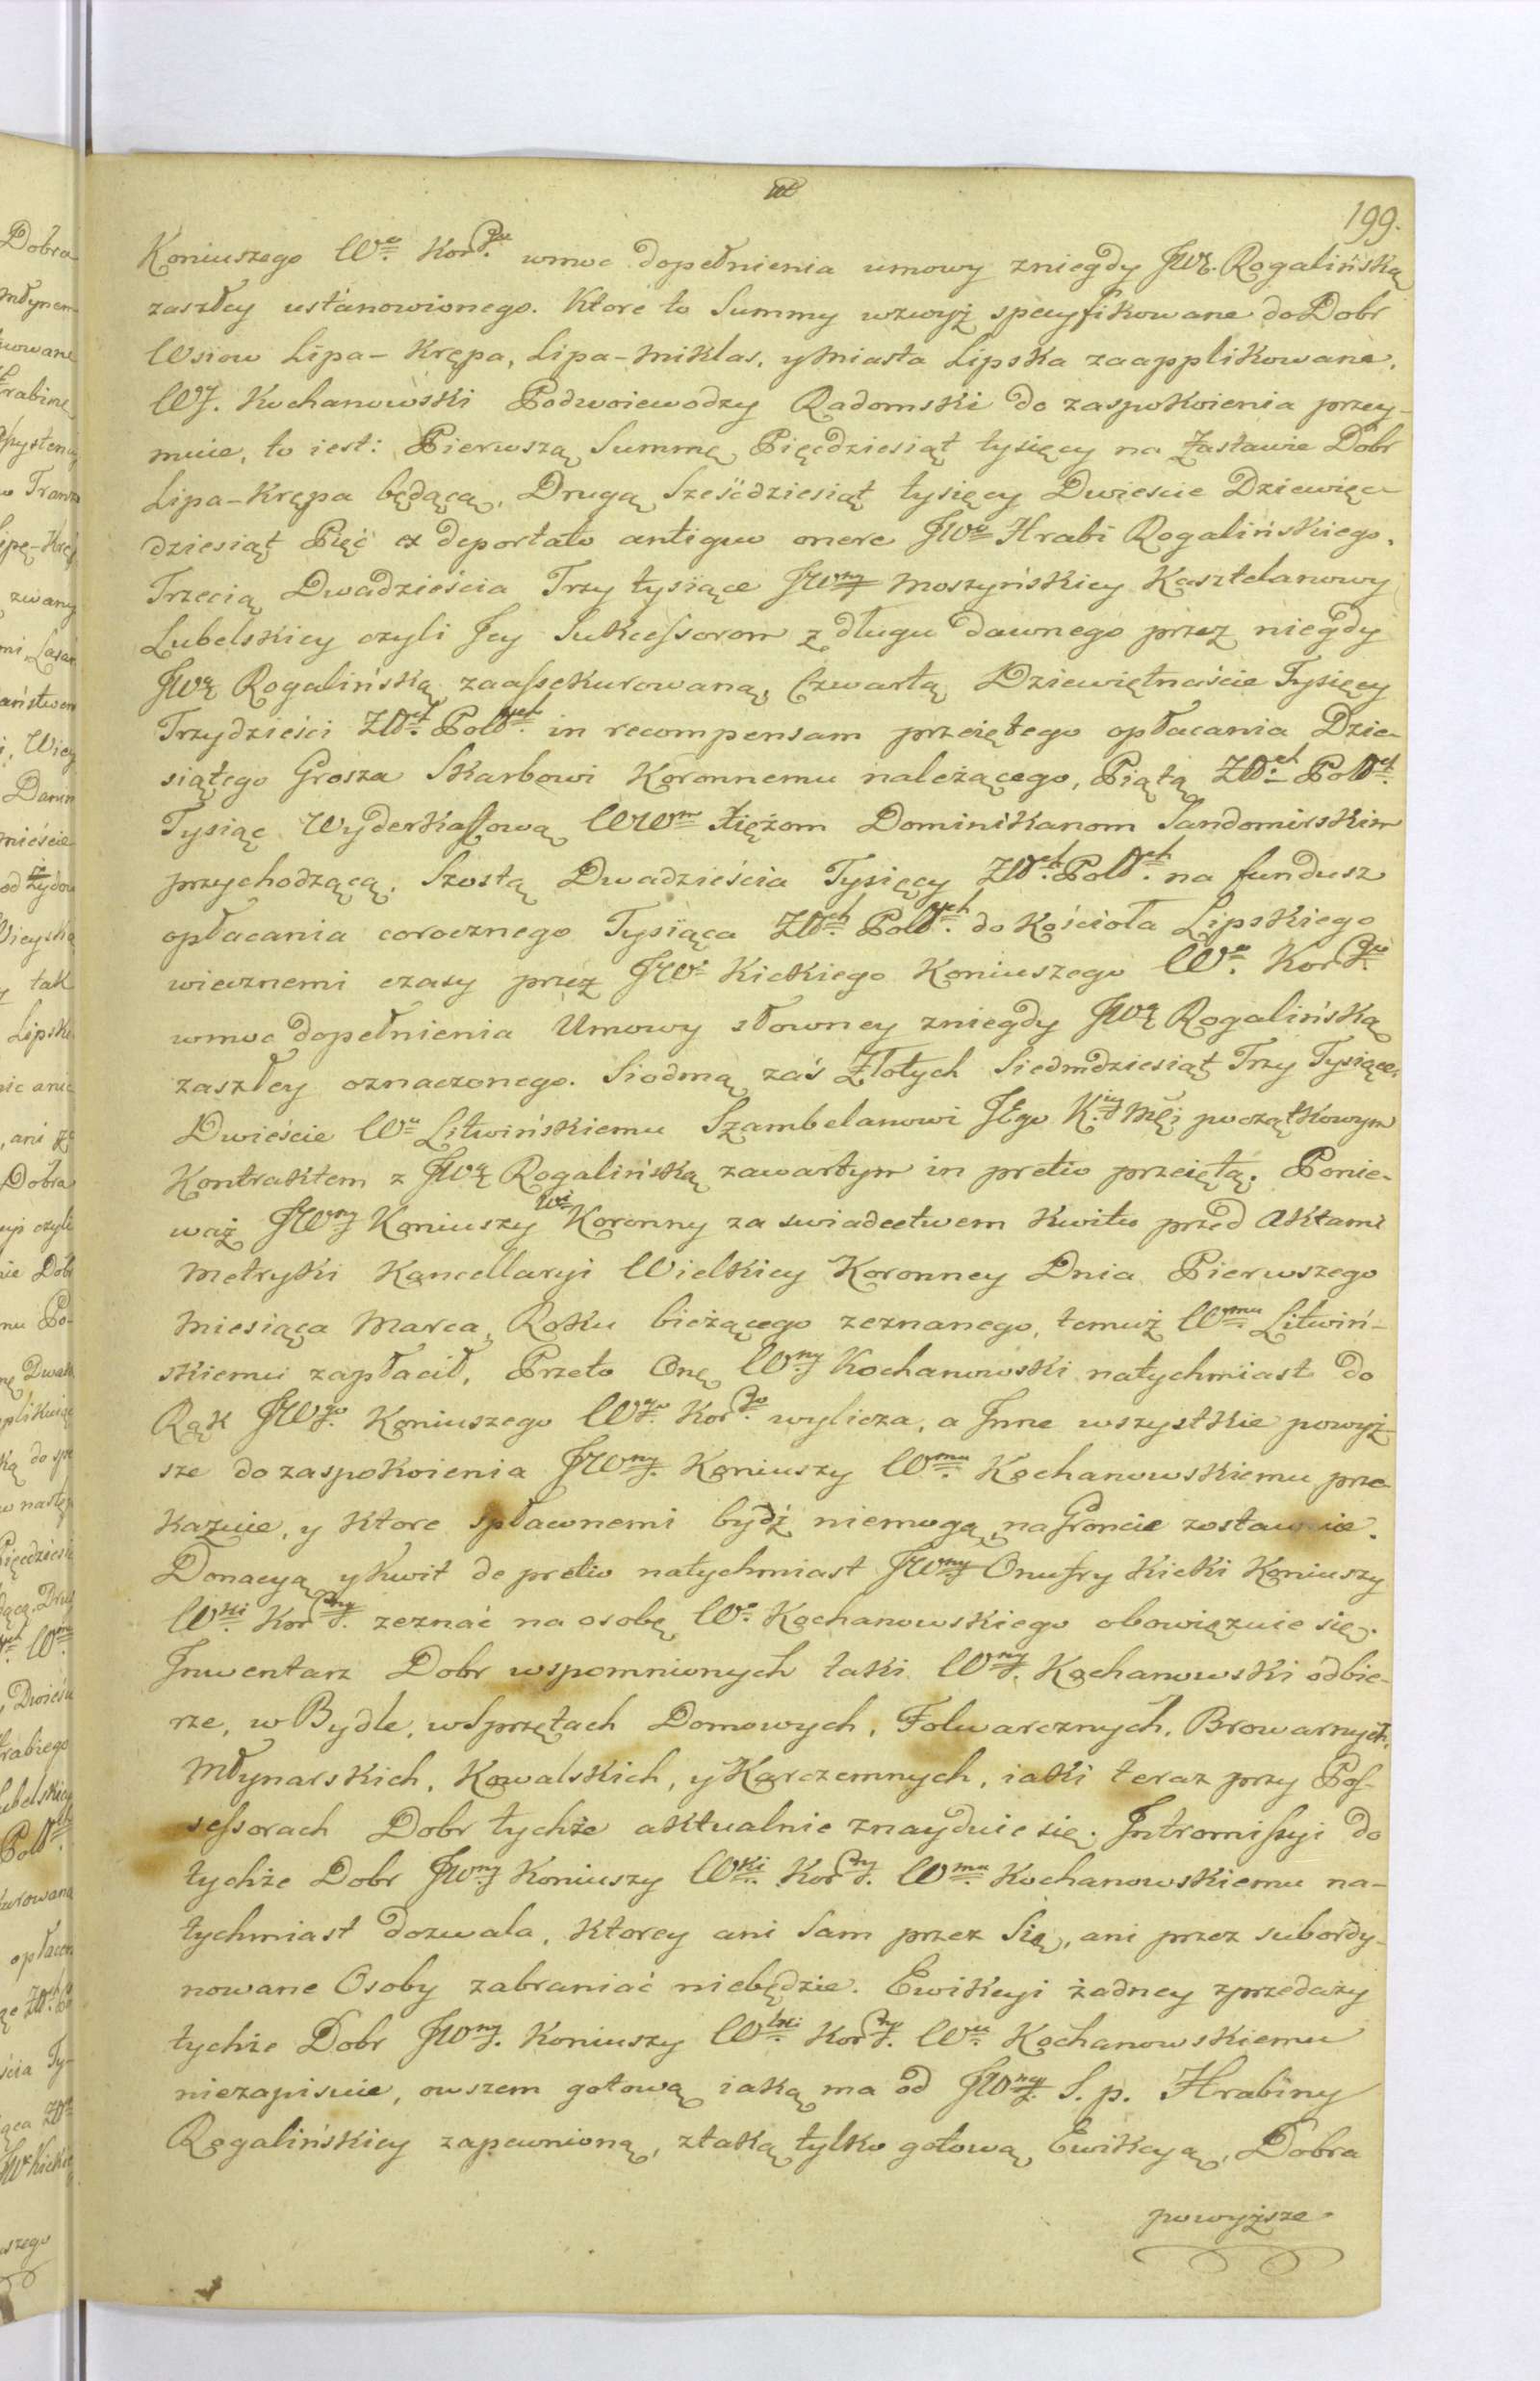 199.
Koniuszego Wo. Korgo. wmoc dopełnienia umowy zniegdy JWą. Rogalińską
zaszłey ustanowionego. Ktore to Summy wzwyż specyfikowane do Dobr
Wsiow Lipa-Krępa, Lipa-Miklas, y Miasta Lipska zaapplikowane.
WJ. Kochanowski Podwoiewodzy Radomski do zaspokoienia przey-
muie, to iest: Pierwszą Summę Pięćdziesiąt tysięcy na Zastawie Dobr
Lipa-Krępa będącą, Drugą Sześćdziesiąt tysięcy Dwieście Dziewięć-
dziesiąt Pięć ex deportato antiquo onere JWo Hrabi Rogalińskiego,
Trzecią Dwadzieścia Trzy tysiące JWny Moszyńskiey Kasztelanowy
Lubelskiey czyli Jey Sukcessorom z długu dawnego przez niegdy
JWą Rogalińską zaassekurowaną, Czwartą Dziewiętnaście Tysięcy
Trzydzieści Złłch. Polłłych. in recompensam przeiętego opłacania Dzie-
siątego Grosza Skarbowi Koronnemu należącego, Piątą Złłch Polłłch.
Tysiąc Wyderkaffową WWm Xiężom Dominikanom Sandomirskim
przychodzącą. Szostą Dwadzieścia Tysięcy Złłch. Polłłch. na fundusz
opłacania corocznego Tysiąca Złłch Polłłych. do Kościoła Lipskiego
wiecznemi czasy przez JWo Kickiego Koniuszego Wo. Korgo
wmoc dopełnienia Umowy słowney zniegdy JWą Rogalińską
zaszłey oznaczonego. Siodmą zaś Złotych Siedmdziesiąt Trzy Tysiące
Dwieście Wu Litwińskiemu Szambelanowi JEgo K.iey Mći początkowym
Kontraktem z JWą Rogalińską zawartym in pretio przeiętą. Ponie-
waż JWny Koniuszy Wi Koronny za swiadectwem Kwitu przed Aktami
Metryki Kancellaryi Wielkiey Koronney Dnia Pierwszego
Miesiąca Marca, Roku bieżącego zeznanego, temuż Wmu Litwiń-
skiemu zapłacił, Przeto Onę Wny Kochanowski natychmiast do
Rąk JWgo Koniuszego Wgo. Korgo. wylicza, a Inne wszystkie powyż-
sze do zaspokoienia JWny. Koniuszy Wmu. Kochanowskiemu prze-
kazuie, y ktore spłacnemi bydź niemogą, na Groncie zostawuie.
Donacyą y Kwit de pretio natychmiast JWny Onufry Kicki Koniuszy
Wki Korny. zeznać na osobę Wo. Kochanowskiego obowięzuie się.
Inwentarz Dobr wspomnionych taki Wny. Kochanowski odbie-
rze, w Bydle, w Sprzętach Domowych, Folwarcznych, Browarnych,
Młynarskich, Kowalskich, y Karczemnych, iaki teraz przy Pos-
sessorach Dobr tychże aktualnie znayduie się. Intromissyi do
tychże Dobr JWny Koniuszy Wki. Korny. Wmu. Kochanowskiemu na-
tychmiast dozwala, ktorey ani Sam przez Się, ani przez subordy-
nowane Osoby zabraniać niebędzie. Ewikcyi żadney zprzedaży
tychże Dobr JWny. Koniuszy Wlki Korny. Wu. Kochanowskiemu
niezapisuie, owszem gotową iaką ma od JWney. S. p. Hrabiny
Rogalińskiey zapewnioną, ztaką tylko gotową Ewikcyą, Dobra
powyższe